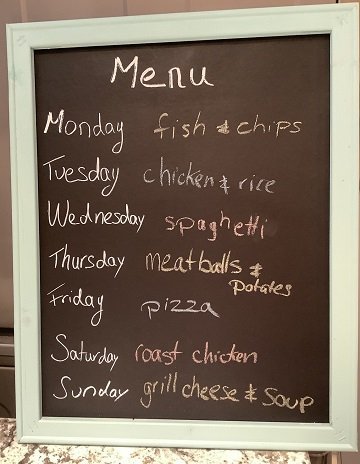 Menu
Monday fish & chips
Tuesday chicken & rice
Wednesday spaghetti
Thursday meatballs &
potates
Friday pizza
Saturday roast chicken
Sunday grill cheese & soup